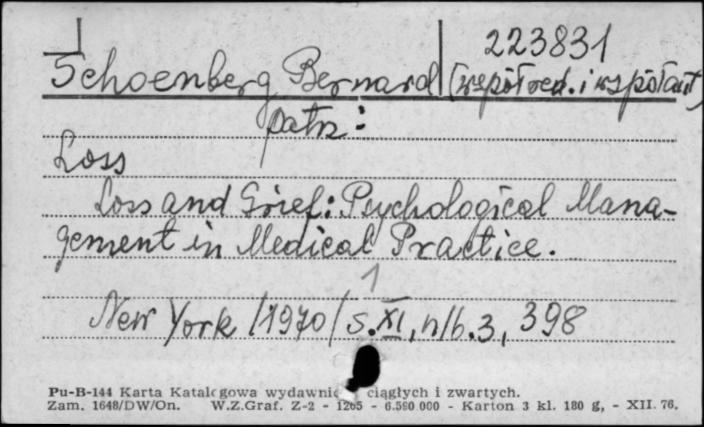 223831
Schoenberg Bernard (współred. i współaut)
patrz:
Loss
Loss and Grief: Psychological Mana-
gement in Medical Practice.
1
New York /1970/ s. XI, nlb. 3, 398
Pu-B-144 Karta Katalogowa wydawnic ciągłych i zwartych.
Zam. 1648/DW/On. W.Z.Graf. Z-2 - 1205 - 6.590 000 - Karton 3 kl. 180 g, - XII. 76.